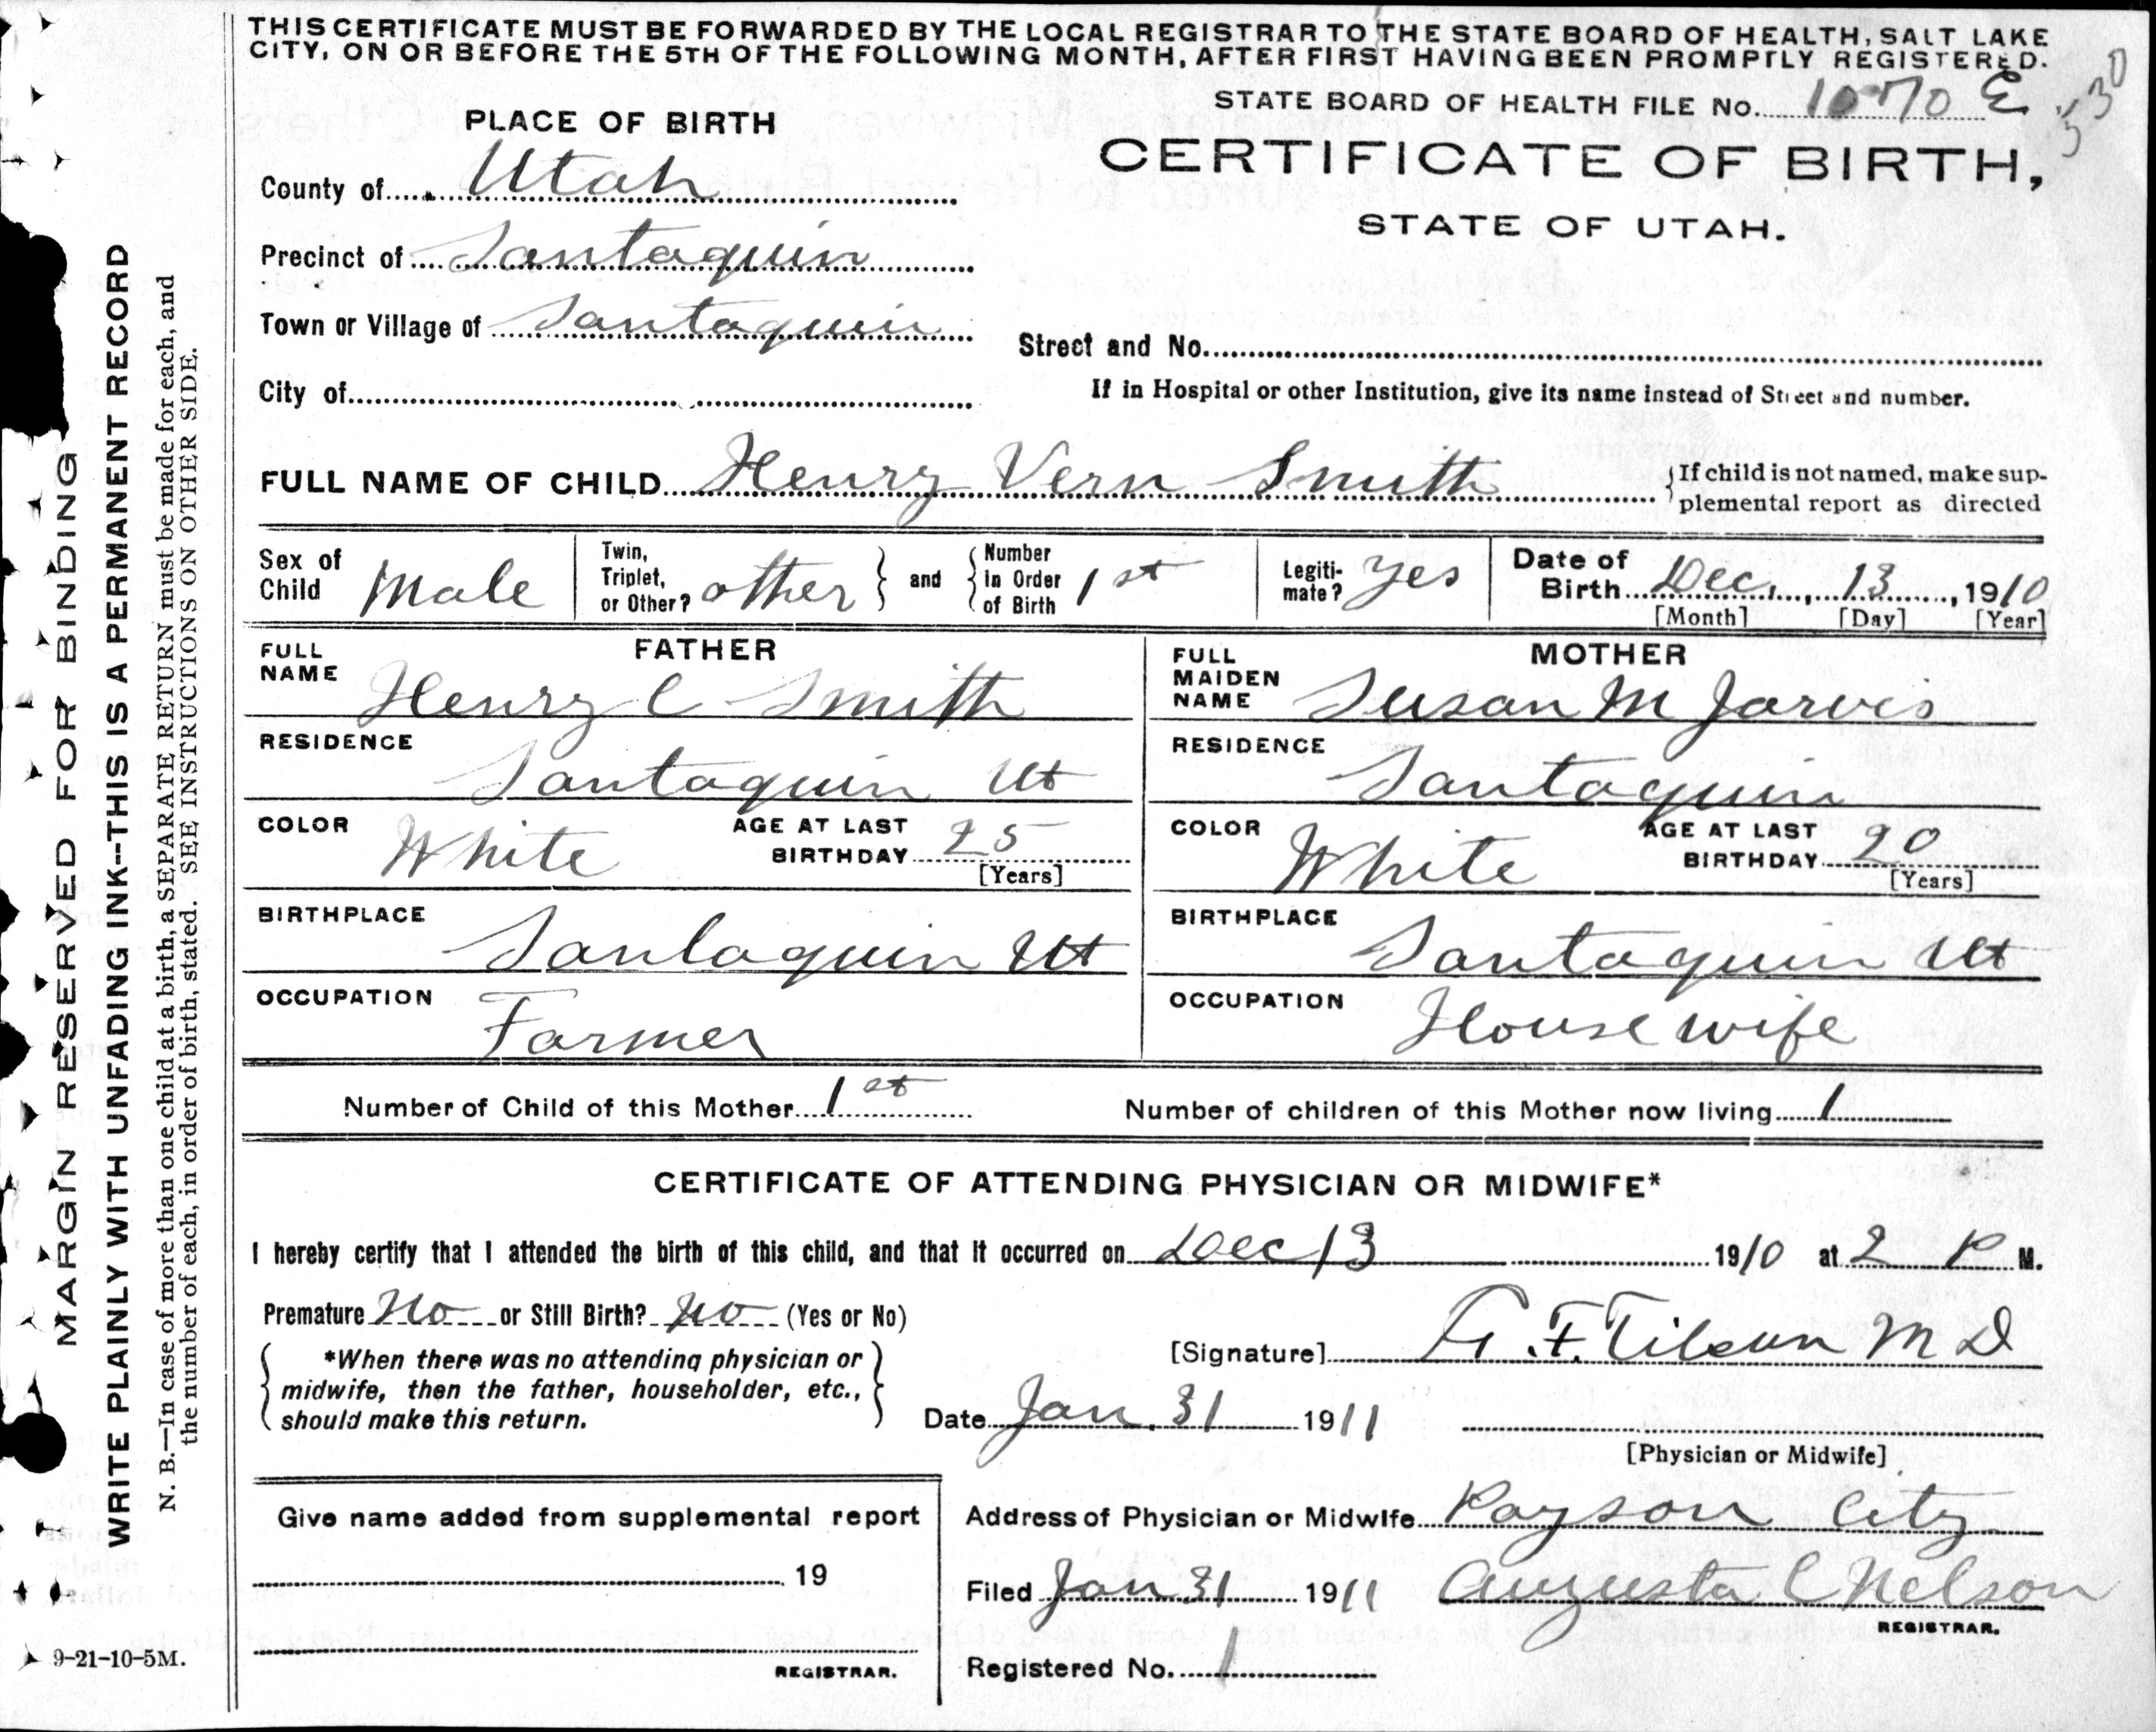 THIS CERTIFICATE MUST BE FORWARDED BY THE LOCAL REGISTRAR TO THE STATE BOARD OF HEALTH, SALT LAKE
CITY, ON OR BEFORE THE 5TH OF THE FOLLOWING MONTH, AFTER FIRST HAVING BEEN PROMPTLY REGISTERED.
STATE BOARD OF HEALTH FILE No. 1070 E
530
CERTIFICATE OF BIRTH,
STATE OF UTAH.
PLACE OF BIRTH
County of Utah
Precinct of Santaquin
Town or Village of Santaquin
Street and No.
City of
If in Hospital or other Institution, give its name instead of Street and number.
FULL NAME OF CHILD Henry Vern Smith
If child is not named, make sup-
plemental report as directed
Sex of Child Male
Twin, Triplet, or Other? other and Number in Order of Birth 1st
Legiti-mate? Yes
Date of Birth Dec, 13, 1910
[Month] [Day] [Year]
FATHER
FULL NAME Henry C Smith
RESIDENCE Santaquin Ut
COLOR White AGE AT LAST BIRTHDAY 25
[Years]
BIRTHPLACE Santaquin Ut
OCCUPATION Farmer
MOTHER
FULL MAIDEN NAME Susan M Jarvis
RESIDENCE Santaquin
COLOR White AGE AT LAST BIRTHDAY 20
[Years]
BIRTHPLACE Santaquin Ut
OCCUPATION House wife
Number of Child of this Mother 1st
Number of children of this Mother now living 1
CERTIFICATE OF ATTENDING PHYSICIAN OR MIDWIFE*
I hereby certify that I attended the birth of this child, and that it occurred on Dec 13 1910 at 2 P M.
Premature No or Still Birth? No (Yes or No)
*When there was no attending physician or
midwife, then the father, householder, etc.,
should make this return.
[Signature] F. Tilson M D
Date Jan. 31 1911
[Physician or Midwife]
Give name added from supplemental report
19
REGISTRAR.
Address of Physician or Midwife Payson City
Filed Jan 31 1911 Augusta C Nelson
REGISTRAR.
Registered No. 1
MARGIN RESERVED FOR BINDING
WRITE PLAINLY WITH UNFADING INK--THIS IS A PERMANENT RECORD
N. B.—In case of more than one child at a birth, a SEPARATE RETURN must be made for each, and
the number of each, in order of birth, stated. SEE INSTRUCTIONS ON OTHER SIDE.
9-21-10-5M.